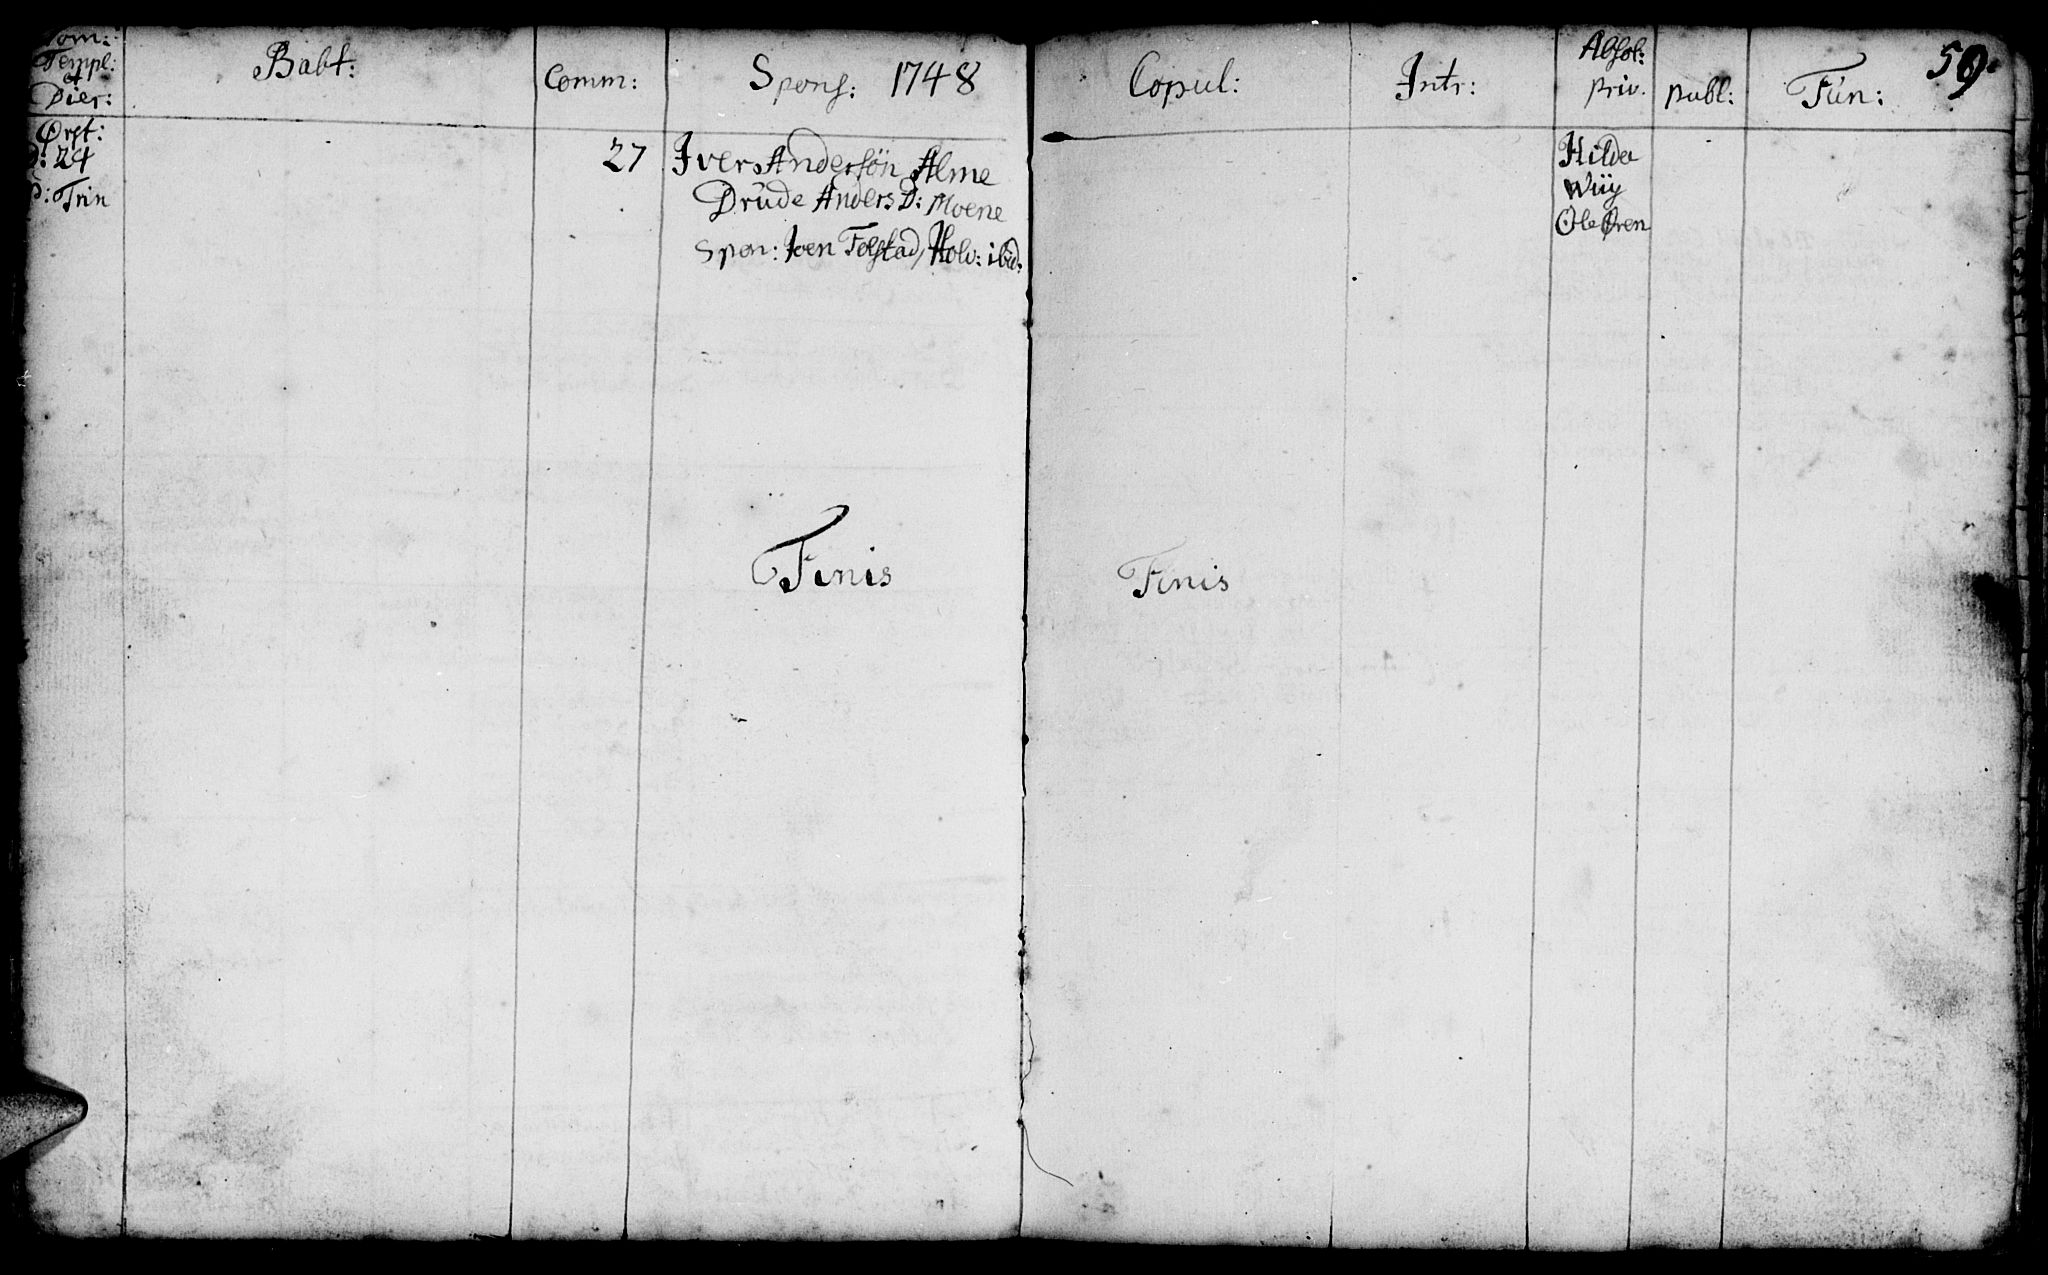 Nom:
Templ:
et
Dier:
Babt:
Comm:
Spons: 1748
Copul:
Intr:
Absol:
priv.
publ:
Fún:
59.
Ørst:
D: 24
D: Trin
27
Iver Andersön Alme
Drúde Anders D: Moene
Spon: Joen Folstad, Holv: ibid:
Hilde
Wiiy
Ole Øren
Finis
Finis